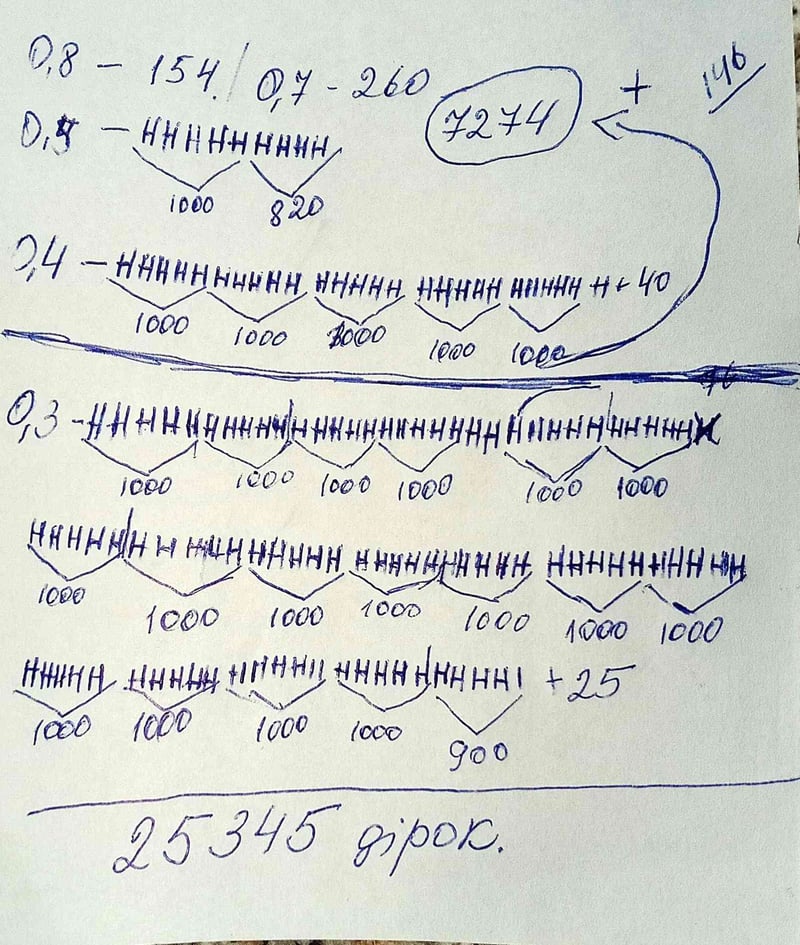 0,8 - 154. / 0,7 - 260
7274 + 146
0,5 - HHHHHHHHH
1000 820
0,4 - HHHHHHHHHH HHHHH HHHHH HHHHH H + 40
1000 1000 1000 1000 1000
0,3 -
1000 1000 1000 1000 1000 1000
1000 1000 1000 1000 1000 1000 1000
+ 25
1000 1000 1000 1000 900
25345 дірок.